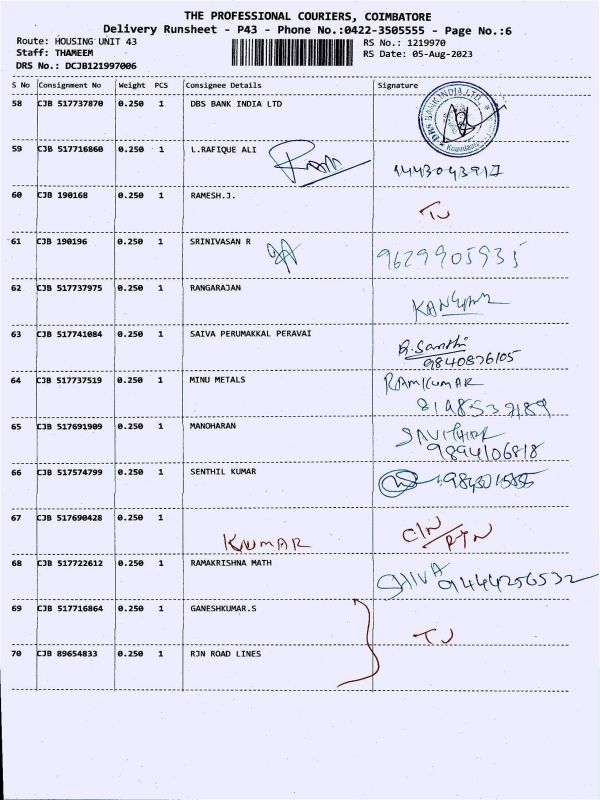 THE PROFESSIONAL COURIERS, COIMBATORE
Delivery Runsheet - P43 - Phone No.:0422-3505555 - Page No.:6
Route: HOUSING UNIT 43 RS No.: 1219970
Staff: THAMEEM RS Date: 05-Aug-2023
DRS No.: DCJB121997006
S No Consignment No Weight PCS Consignee Details Signature
58 CJB 517737870 0.250 1 DBS BANK INDIA LTD
DBS BANK INDIA LTD
59 CJB 517716860 0.250 1 L.RAFIQUE ALI
60 CJB 190168 0.250 1 RAMESH.J.
61 CJB 190196 0.250 1 SRINIVASAN R
9629905935
62 CJB 517737975 0.250 1 RANGARAJAN
63 CJB 517741084 0.250 1 SAIVA PERUMAKKAL PERAVAI
B.Santhi
9840876105
64 CJB 517737519 0.250 1 MINU METALS
RAMKUMAR
65 CJB 517691909 0.250 1 MANOHARAN
9894106818
66 CJB 517574799 0.250 1 SENTHIL KUMAR
67 CJB 517690428 0.250 1
KUMAR
68 CJB 517722612 0.250 1 RAMAKRISHNA MATH
SHIVA 9444256532
69 CJB 517716864 0.250 1 GANESHKUMAR.S
70 CJB 89654833 0.250 1 RJN ROAD LINES